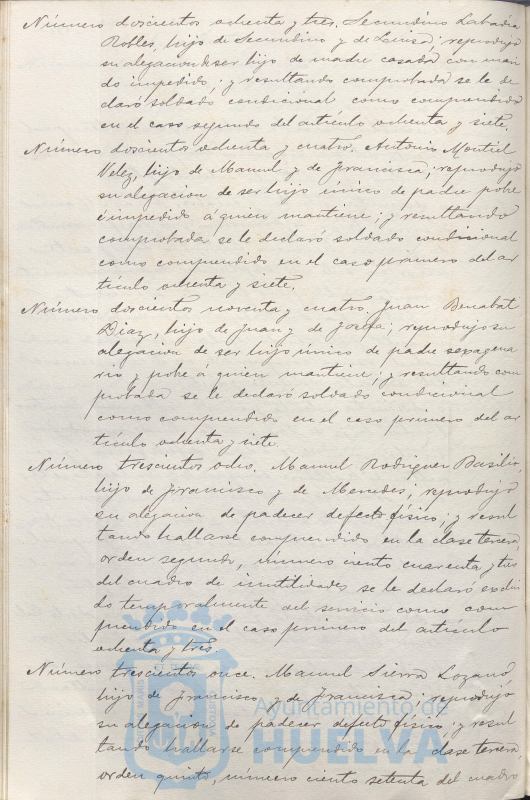 Número doscientos ochenta y tres. Secundino Labadia
Robles, hijo de Secundino y de Luisa; reprodujo
su alegacion de ser hijo de madre casada con mari
do impedido; y resultando comprobada se le de
claró soldado condicional como comprendido
en el caso segundo del artículo ochenta y siete.
Número doscientos ochenta y cuatro. Antonio Montiel
Velez, hijo de Manuel y de Francisca; reprodujo
su alegacion de ser hijo único de padre pobre
é impedido á quien mantiene; y resultando
comprobada se le declaró soldado condicional
como comprendido en el caso primero del ar
tículo ochenta y siete.
Número doscientos noventa y cuatro. Juan Benabat
Diaz, hijo de Juan y de Josefa; reprodujo su
alegacion de ser hijo único de padre sexagena
rio y pobre á quien mantiene; y resultando com
probada se le declaró soldado condicional
como comprendido en el caso primero del ar
tículo ochenta y siete.
Número trescientos ocho. Manuel Rodriguez Basilio,
hijo de Francisco y de Mercedes; reprodujo
su alegacion de padecer defecto físico; y resul
tando hallarse comprendido en la clase tercera
orden segundo, número ciento cuarenta y tres
del cuadro de inutilidades se le declaró exclui
do temporalmente del servicio como com
prendido en el caso primero del artículo
ochenta y tres.
Número trescientos once. Manuel Sierra Lozano,
hijo de Francisco y de Francisca; reprodujo
su alegacion de padecer defecto físico; y resul
tando hallarse comprendido en la clase tercera
orden quinto, número ciento setenta del cuadro
Ayuntamiento de
HUELVA